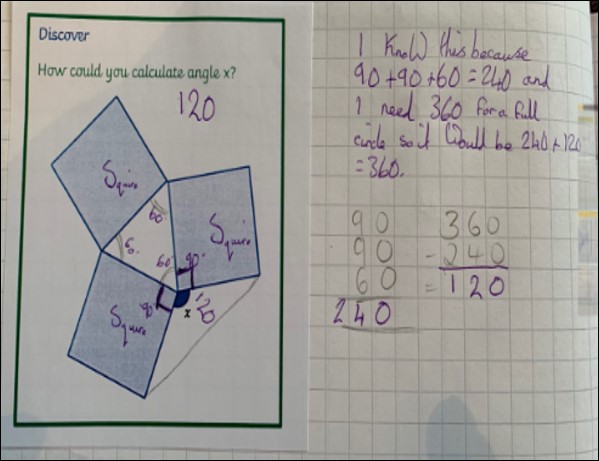 Discover
How could you calculate angle x?
120
Squire
60
Squire
60
60
90
Squire
90
x
120
I KnoW this because
90+90+60=240 and
I need 360 for a full
circle so it Would be 240+120
=360.
90
90
60
240
360
-240
=120